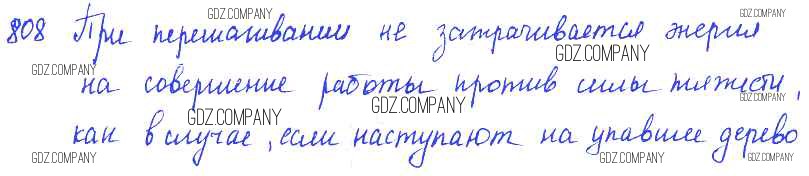 GDZ.COMPANY GDZ.COMPANY
808 При перешагивании не затрачивается энергия
GDZ.COMPANY GDZ.COMPANY
на совершение работы против силы тяжести,
GDZ.COMPANY GDZ.COMPANY GDZ.COMPANY
как в случае, если наступают на упавшее дерево
GDZ.COMPANY GDZ.COMPANY GDZ.COMPANY